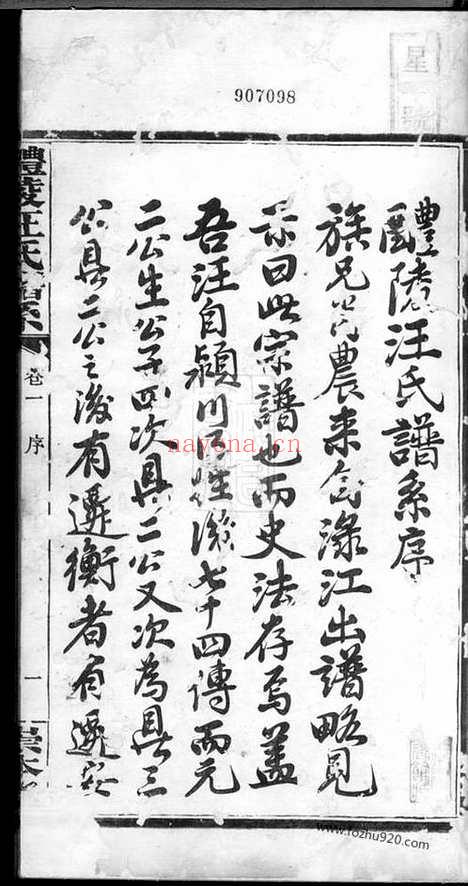 907098
醴陵汪氏譜系序
族兄 農來 淥江出譜略見
示曰此宗譜也而史法存焉蓋
吾汪自潁川 姓 七十四傳而元
二公生公子四次具二公又次為具三
公具二公之後有遷衡者有遷
醴陵汪氏譜系
卷一
序
一
nayona.cn
www.fozhu920.com